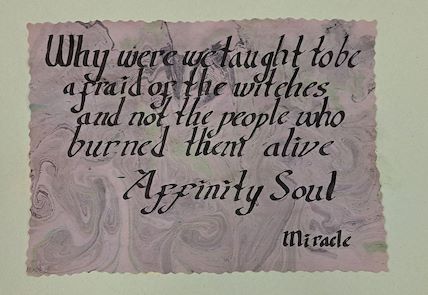 Why were we taught to be
afraid of the witches
and not the people who
burned them alive
-Affinity Soul
Miracle